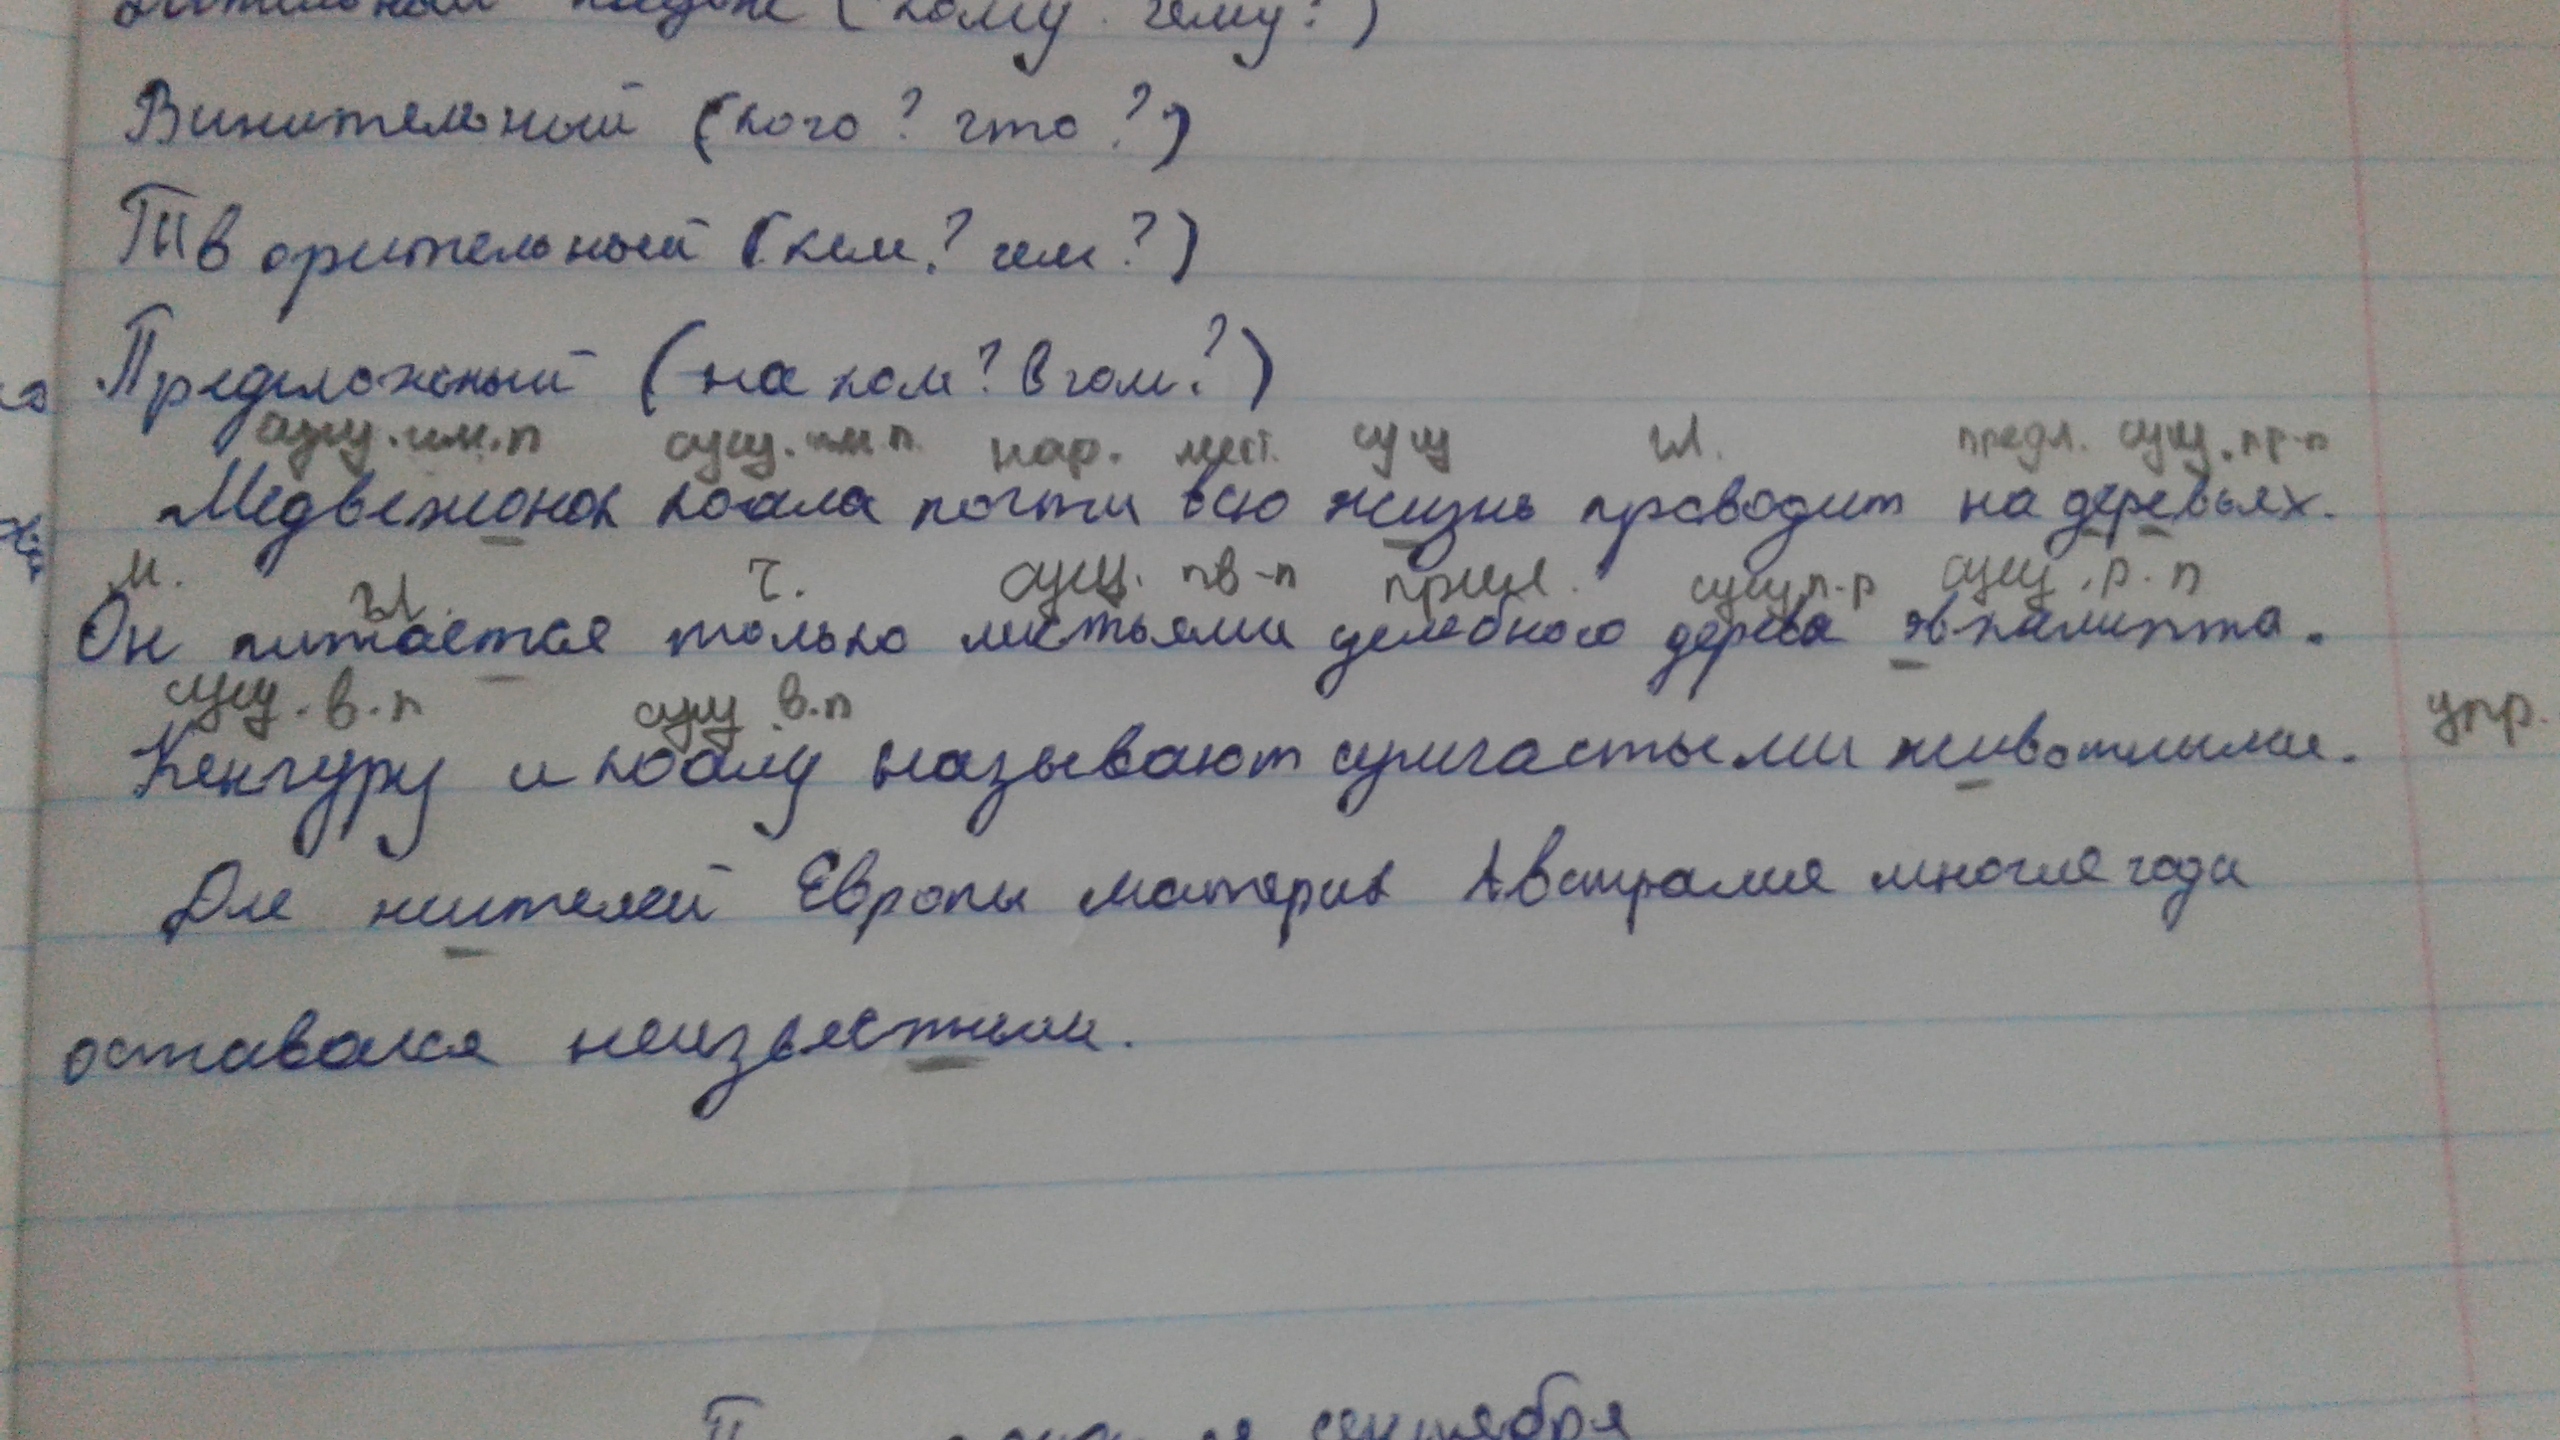 Винительный (кого? что?)
Творительный (кем? чем?)
Предложный (на ком? в чом?)
сущ. им. п сущ. им п. нар. мест. сущ гл. предл. сущ. пр-п
Медвежонок коала почти всю жизнь проводит на деревьях.
М. гл т. сущ. тв-п прил. сущ. р-п сущ. р. п
Он питается только листьями целебного дерева эвкалипта.
сущ. в. п сущ в. п
Кенгуру и коалу называют сумчастыми животными. упр.
Для жителей Европы материк Австралия многие года
оставался неизвестным.